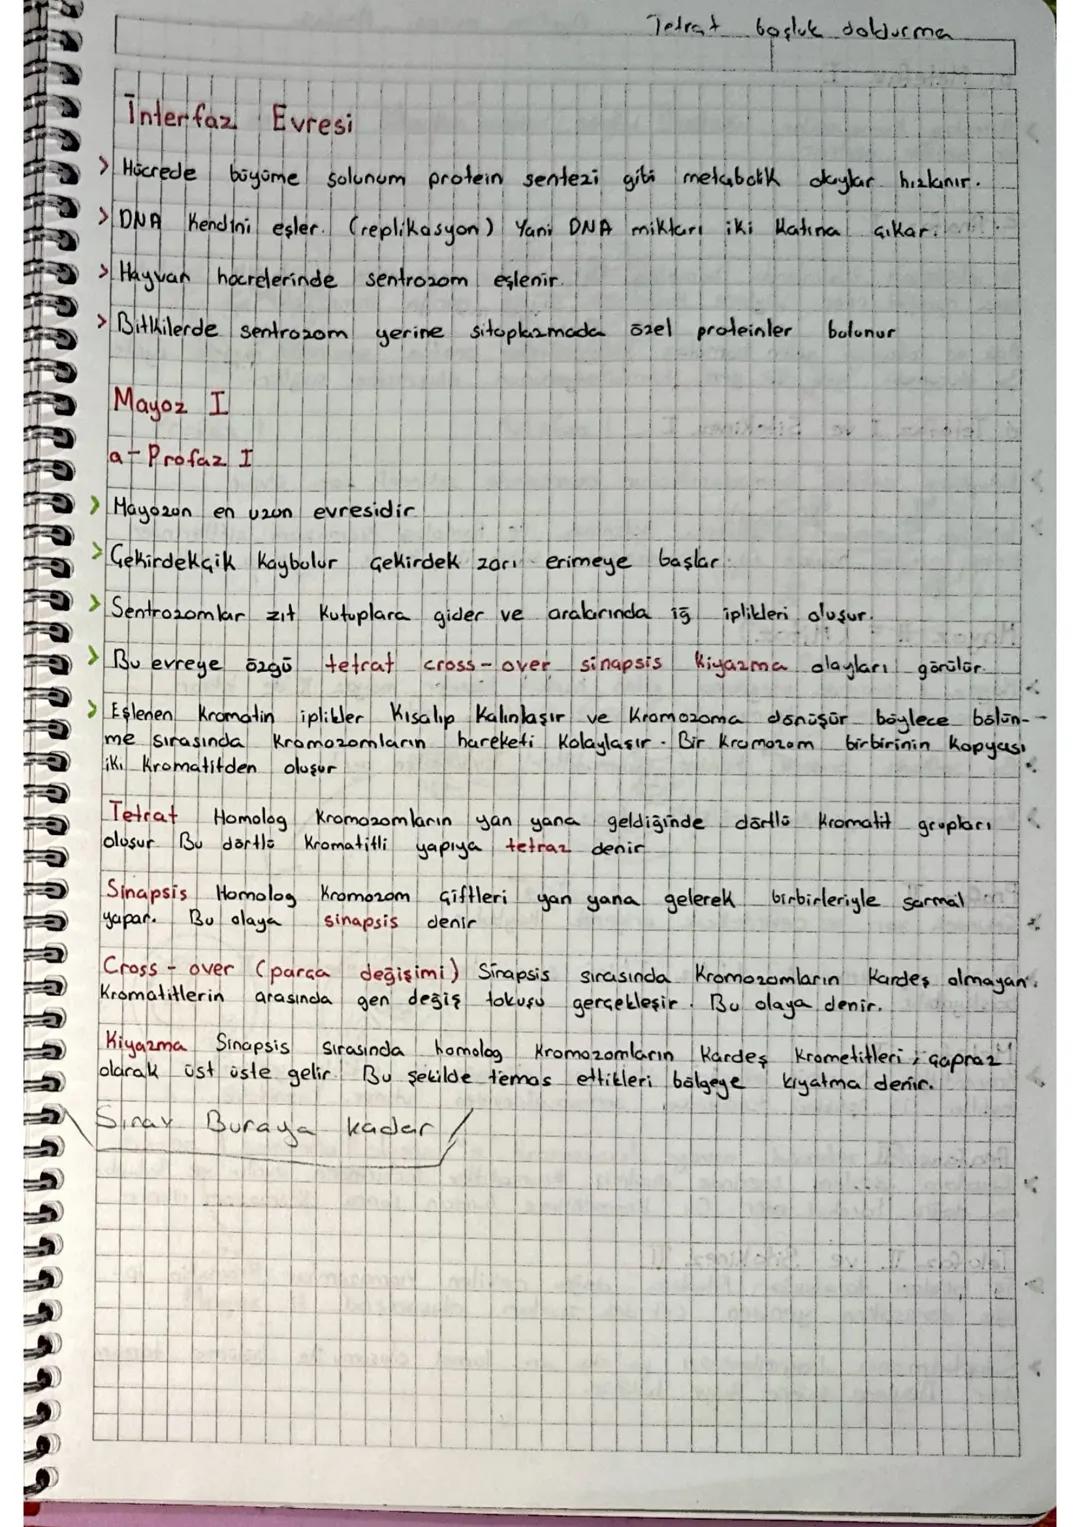 Tetrat boşluk doldurma
İnterfaz Evresi
> Hücrede büyüme solunum protein sentezi gibi metabolik olaylar hızlanır.
> DNA Kendini eşler. (replikasyon) Yani DNA miktarı iki Katına çıkar.
> Hayvan hücrelerinde sentrozom eşlenir.
> Bitkilerde sentrozom yerine sitoplazmada özel proteinler bulunur
Mayoz I
a- Profaz I
> Mayozun en uzun evresidir
> Çekirdekçik Kaybolur çekirdek zarı erimeye başlar
> Sentrozomlar zıt Kutuplara gider ve aralarında iğ iplikleri oluşur.
> Bu evreye özgü tetrat cross-over sinapsis kiyazma olayları görülür.
> Eşlenen kromatin iplikler Kısalıp Kalınlaşır ve Kromozoma dönüşür böylece bölün-
me sırasında Kromozomların hareketi Kolaylaşır. Bir Kromozom birbirinin Kopyası
iki Kromatitden oluşur
Tetrat Homolog Kromozomların yan yana geldiğinde dörtlü Kromatit grupları
oluşur Bu dörtlü Kromatitli yapıya tetraz denir
Sinapsis Homolog Kromozom çiftleri yan yana gelerek birbirleriyle sarmal
yapar. Bu olaya sinapsis denir
Cross-over (parça değişimi) Sinapsis sırasında Kromozomların Kardeş olmayan
Kromatitlerin arasında gen değiş tokuşu gerçekleşir. Bu olaya denir.
Kiyazma Sinapsis sırasında homolog Kromozomların Kardeş Krometitleri çapraz
olarak üst üste gelir Bu şekilde temas ettikleri bölgeye kıyatma denir.
Sınav Buraya kadar